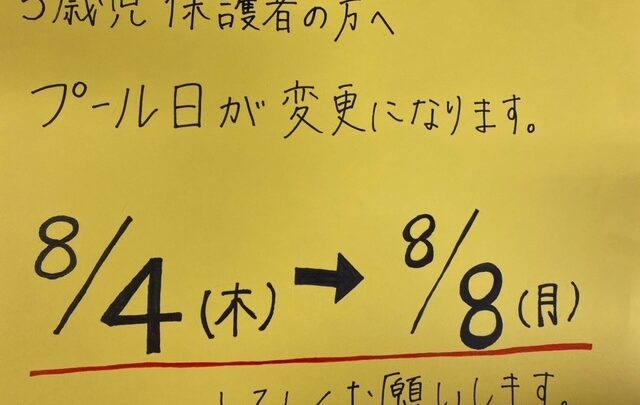 歳児 保護者の方へ
プール日が変更になります。
8/4(木)➡8/8(月)
しくお願いします。